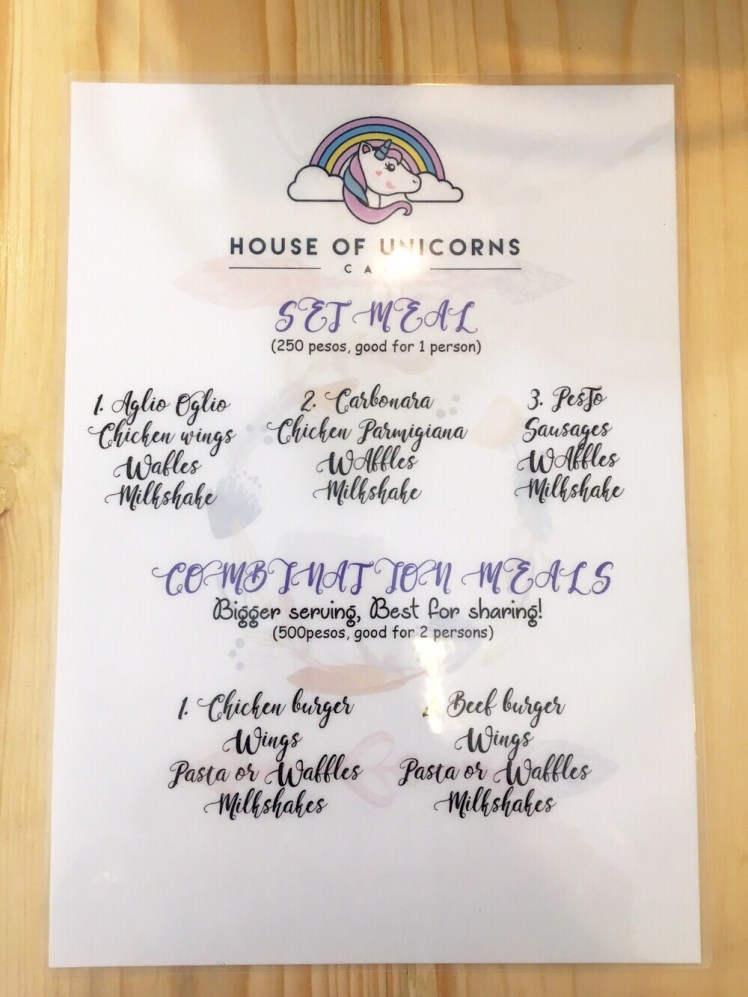 HOUSE OF UNICORNS
SET MEAL
(250 pesos, good for 1 person)
1. Aglio Oglio
Chicken wings
Wafles
Milkshake
2. Carbonara
Chicken Parmigiana
WAffles
Milkshake
3. PesTo
Sausages
WAffles
Milkshake
COMBINATION MEALS
Bigger serving, Best for sharing!
(500pesos, good for 2 persons)
1. Chicken burger
Wings
Pasta or Waffles
Milkshakes
Beef burger
Wings
Pasta or Waffles
Milkshakes